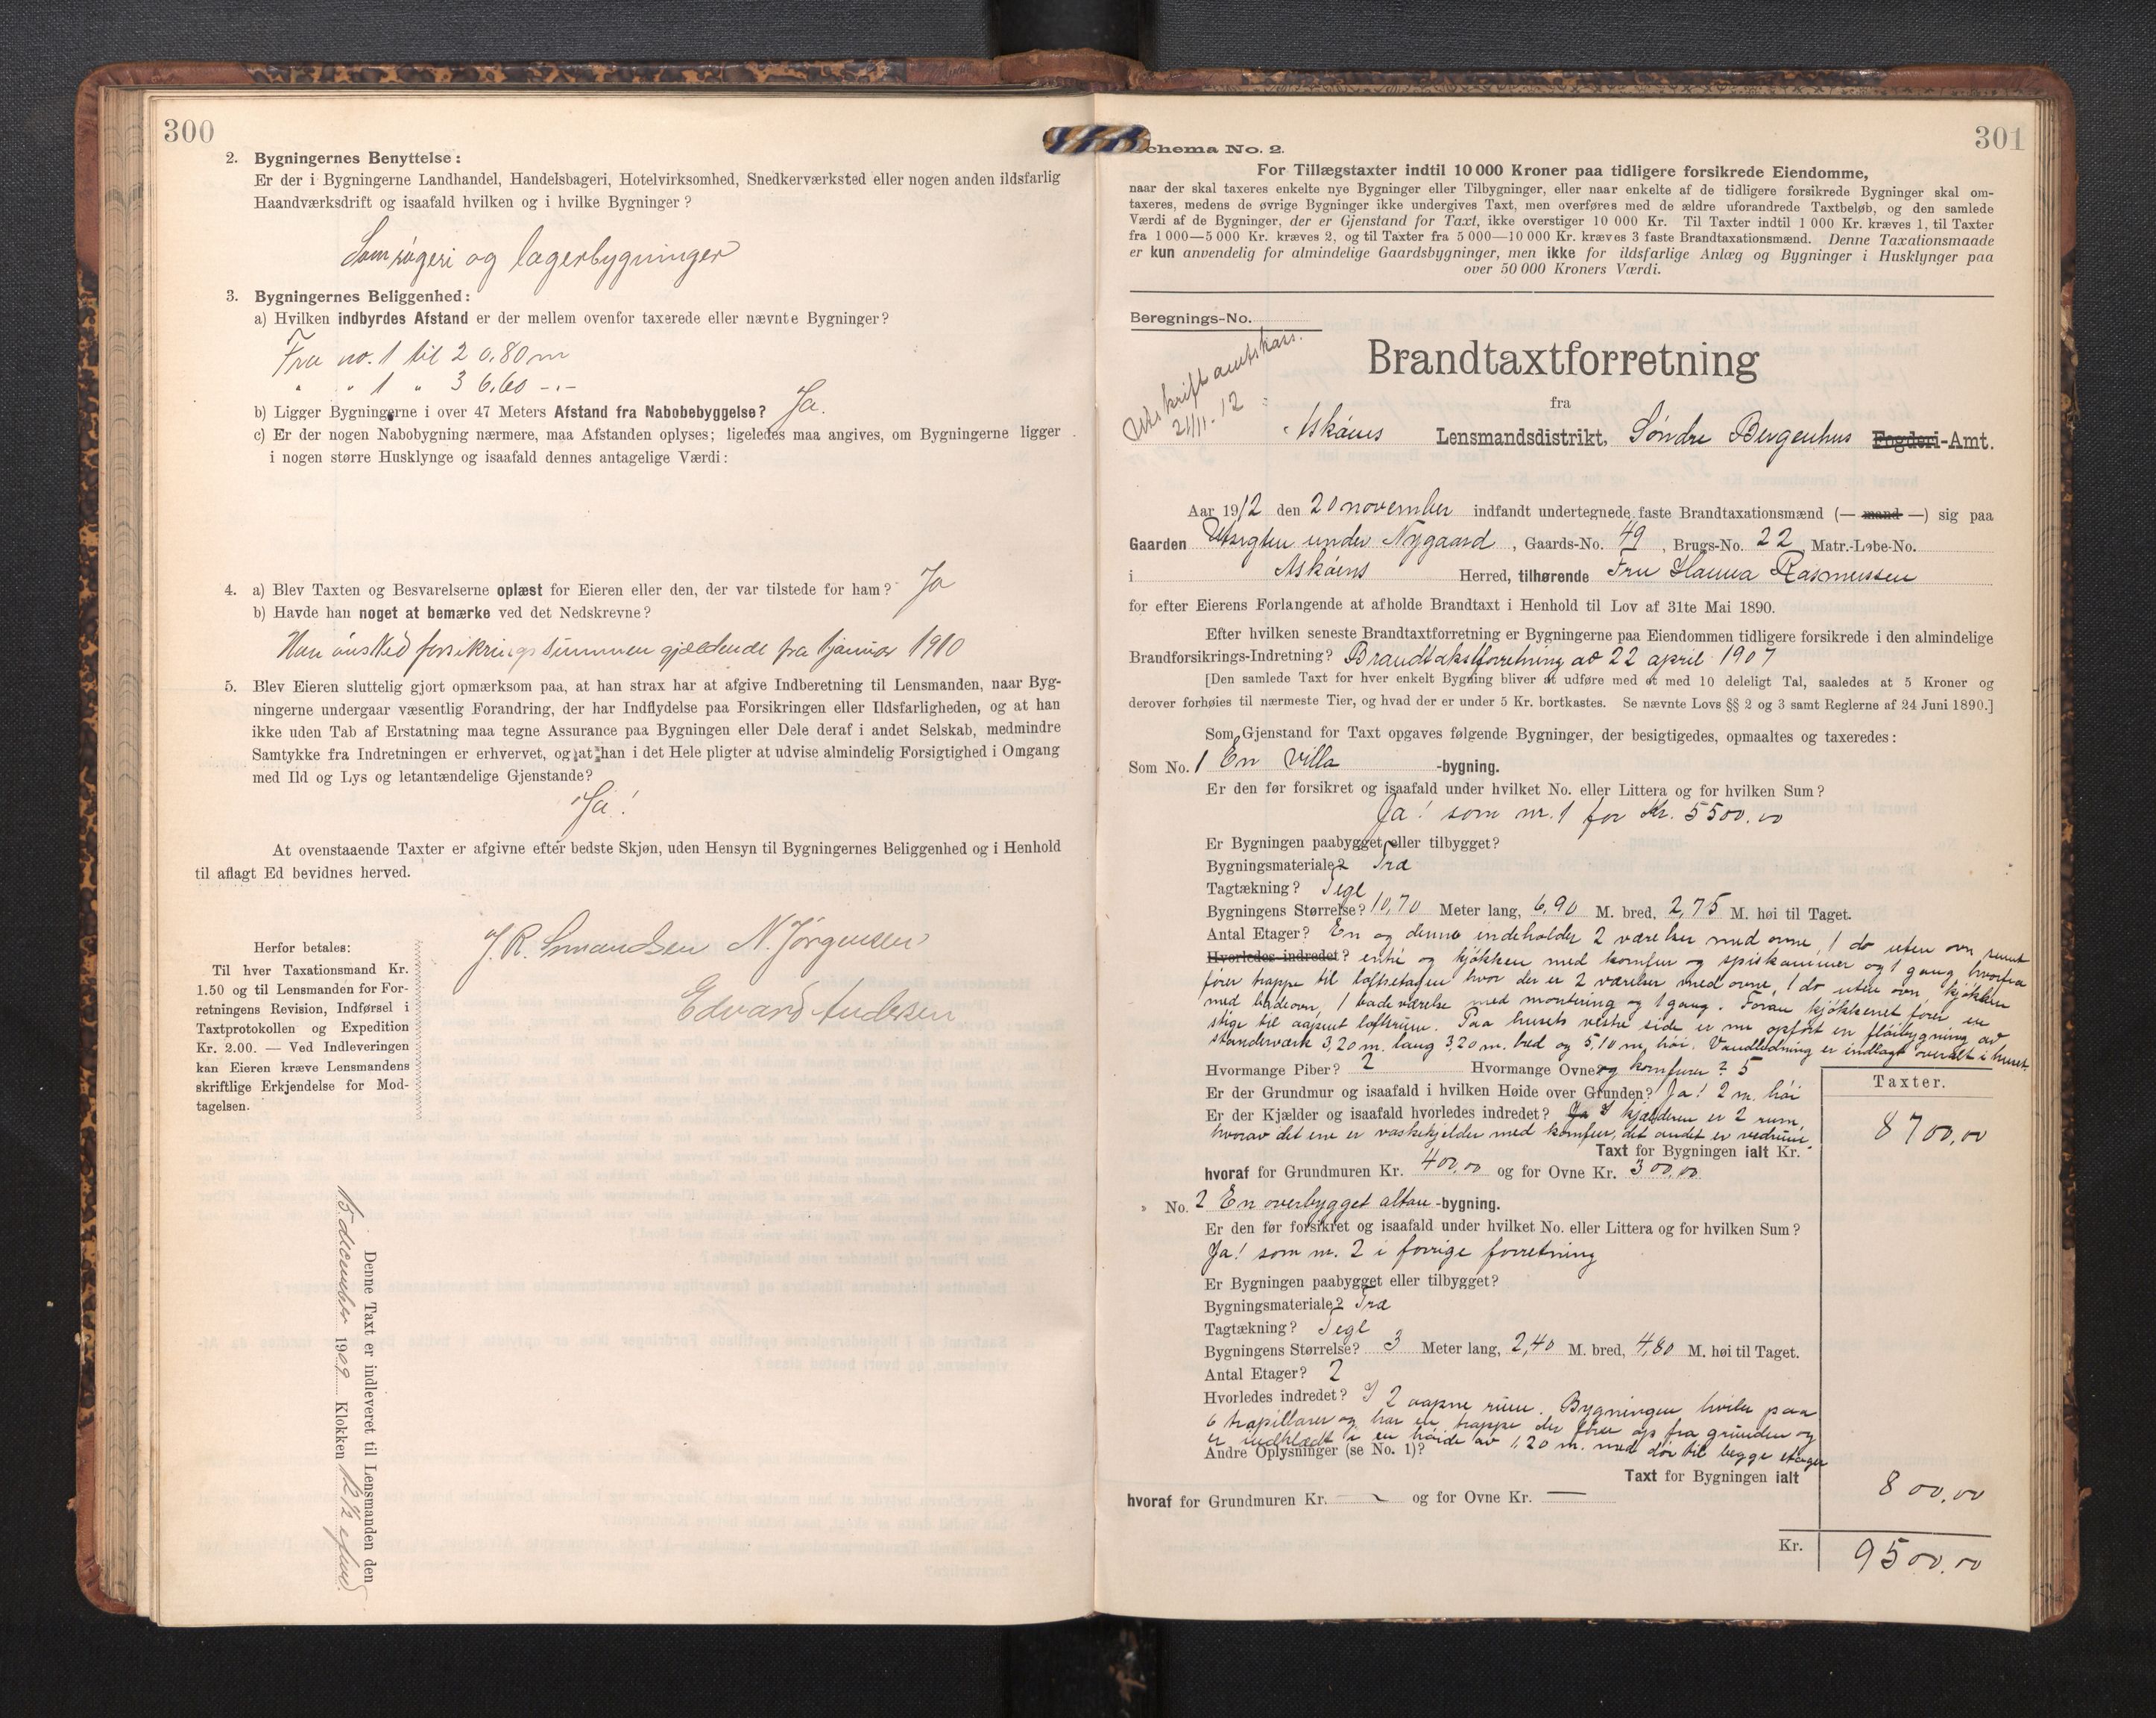 300
2. Bygningernes Benyttelse:
Er der i Bygningerne Landhandel, Handelsbageri, Hotelvirksomhed, Snedkerværksted eller nogen anden ildsfarlig
Haandværksdrift og isaafald hvilken og i hvilke Bygninger?
Som røgeri og lagerbygninger
3. Bygningernes Beliggenhed:
a) Hvilken indbyrdes Afstand er der mellem ovenfor taxerede eller nævnte Bygninger?
Fra no. 1 til 2 0,80 m
" " 1 " 3 6,60 -"-
b) Ligger Bygningerne i over 47 Meters Afstand fra Nabobebyggelse? Ja.
c) Er der nogen Nabobygning nærmere, maa Afstanden oplyses; ligeledes maa angives, om Bygningerne ligger
i nogen større Husklynge og isaafald dennes antagelige Værdi:
4. a) Blev Taxten og Besvarelserne oplæst for Eieren eller den, der var tilstede for ham? Ja
b) Havde han noget at bemærke ved det Nedskrevne?
Han ønsked forsikringssummen gjældende fra 1 januar 1910
5. Blev Eieren sluttelig gjort opmærksom paa, at han strax har at afgive Indberetning til Lensmanden, naar Byg-
ningerne undergaar væsentlig Forandring, der har Indflydelse paa Forsikringen eller Ildsfarligheden, og at han
ikke uden Tab af Erstatning maa tegne Assurance paa Bygningen eller Dele deraf i andet Selskab, medmindre
Samtykke fra Indretningen er erhvervet, og at han i det Hele pligter at udvise almindelig Forsigtighed i Omgang
med Ild og Lys og letantændelige Gjenstande?
Ja!
At ovenstaaende Taxter er afgivne efter bedste Skjøn, uden Hensyn til Bygningernes Beliggenhed og i Henhold
til aflagt Ed bevidnes herved.
J. R. N. Jørgensen
Edvard Andersen
Herfor betales:
Til hver Taxationsmand Kr.
1.50 og til Lensmanden for For-
retningens Revision, Indførsel i
Taxtprotokollen og Expedition
Kr. 2.00. — Ved Indleveringen
kan Eieren kræve Lensmandens
skriftlige Erkjendelse for Mod-
tagelsen.
Denne Taxt er indleveret til Lensmanden den
15 december 1909 Klokken 12 1/2
301
Schema No. 2.
For Tillægstaxter indtil 10 000 Kroner paa tidligere forsikrede Eiendomme,
naar der skal taxeres enkelte nye Bygninger eller Tilbygninger, eller naar enkelte af de tidligere forsikrede Bygninger skal om-
taxeres, medens de øvrige Bygninger ikke undergives Taxt, men overføres med de ældre uforandrede Taxtbeløb, og den samlede
Værdi af de Bygninger, der er Gjenstand for Taxt, ikke overstiger 10 000 Kr. Til Taxter indtil 1 000 Kr. kræves 1, til Taxter
fra 1 000—5 000 Kr. kræves 2, og til Taxter fra 5 000—10 000 Kr. kræves 3 faste Brandtaxationsmænd. Denne Taxationsmaade
er kun anvendelig for almindelige Gaardsbygninger, men ikke for ildsfarlige Anlæg og Bygninger i Husklynger paa
over 50 000 Kroners Værdi.
Beregnings-No.
Utskrift amtskass.
21/11.12
Brandtaxtforretning
fra
Askøens Lensmandsdistrikt, Søndre Bergenhus Fogderi-Amt.
Aar 1912 den 20 november indfandt undertegnede faste Brandtaxationsmænd (— mand —) sig paa
Gaarden Utsigten under Nygaard, Gaards-No. 49, Brugs-No. 22 Matr.-Løbe-No.
i Askøens Herred, tilhørende Fru Hanna Rasmussen
for efter Eierens Forlangende at afholde Brandtaxt i Henhold til Lov af 31te Mai 1890.
Efter hvilken seneste Brandtaxtforretning er Bygningerne paa Eiendommen tidligere forsikrede i den almindelige
Brandforsikrings-Indretning? Brandtakstforretning av 22 april 1907
[Den samlede Taxt for hver enkelt Bygning bliver at udføre med et med 10 deleligt Tal, saaledes at 5 Kroner og
derover forhøies til nærmeste Tier, og hvad der er under 5 Kr. bortkastes. Se nævnte Lovs §§ 2 og 3 samt Reglerne af 24 Juni 1890.]
Som Gjenstand for Taxt opgaves følgende Bygninger, der besigtigedes, opmaaltes og taxeredes:
Som No. 1 En villa -bygning.
Er den før forsikret og isaafald under hvilket No. eller Littera og for hvilken Sum?
Ja! som nr. 1 for Kr. 5500.00
Er Bygningen paabygget eller tilbygget?
Bygningsmateriale? Træ
Tagtækning? Tegl
Bygningens Størrelse? 10,70 Meter lang, 6,90 M. bred, 2,75 M. høi til Taget.
Antal Etager? En og denne indeholder 2 værelser med ovne, 1 do uten ovn samt
Hvorledes indredet? entré og kjøkken med komfur og spiskammer og 1 gang hvorfra
fører trappe til loftsetagen hvor der er 2 værelser med ovne, 1 do uten ovn kjøkken
med badeovn, 1 badeværelse med montering og 1 gang. Foran kjøkkenet fører en
stige til aapent loftsrum. Paa husets vestre side er nu opført en fløibygning av
standerværk 3,20 m. lang 3,20 m. bred og 5,10 m. høi. Vandledning er indlagt overalt i huset.
Hvormange Piber? 2 Hvormange Ovne og komfurer? 5
Er der Grundmur og isaafald i hvilken Høide over Grunden? Ja! 2 m. høi
Er der Kjælder og isaafald hvorledes indredet? Ja I kjælderen er 2 rum,
hvorav det ene er vaskekjelder med komfur, det andet er vedrum.
Taxter.
Taxt for Bygningen ialt Kr. 8700,00
hvoraf for Grundmuren Kr. 400,00 og for Ovne Kr. 300,00
" No. 2 En overbygget altan -bygning.
Er den før forsikret og isaafald under hvilket No. eller Littera og for hvilken Sum?
Ja! som nr. 2 i forrige forretning
Er Bygningen paabygget eller tilbygget?
Bygningsmateriale? Træ
Tagtækning? Tegl
Bygningens Størrelse? 3 Meter lang, 2,40 M. bred, 4,80 M. høi til Taget.
Antal Etager? 2
Hvorledes indredet? I 2 aapne rum. Bygningen hviler paa
6 træpillarer og har en trappe der fører op fra grunden og
er indklædt i en høide av 1,20 m. med dør til begge etager
Andre Oplysninger (se No. 1)?
Taxt for Bygningen ialt 800,00
hvoraf for Grundmuren Kr. — og for Ovne Kr. —
Kr. 9500,00